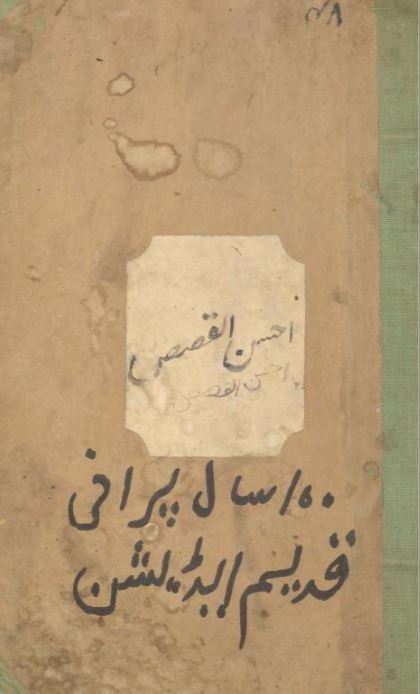 احسن القصص
احسن القصص
۱۵۰ سال پرانی
قدیم ایڈیشن